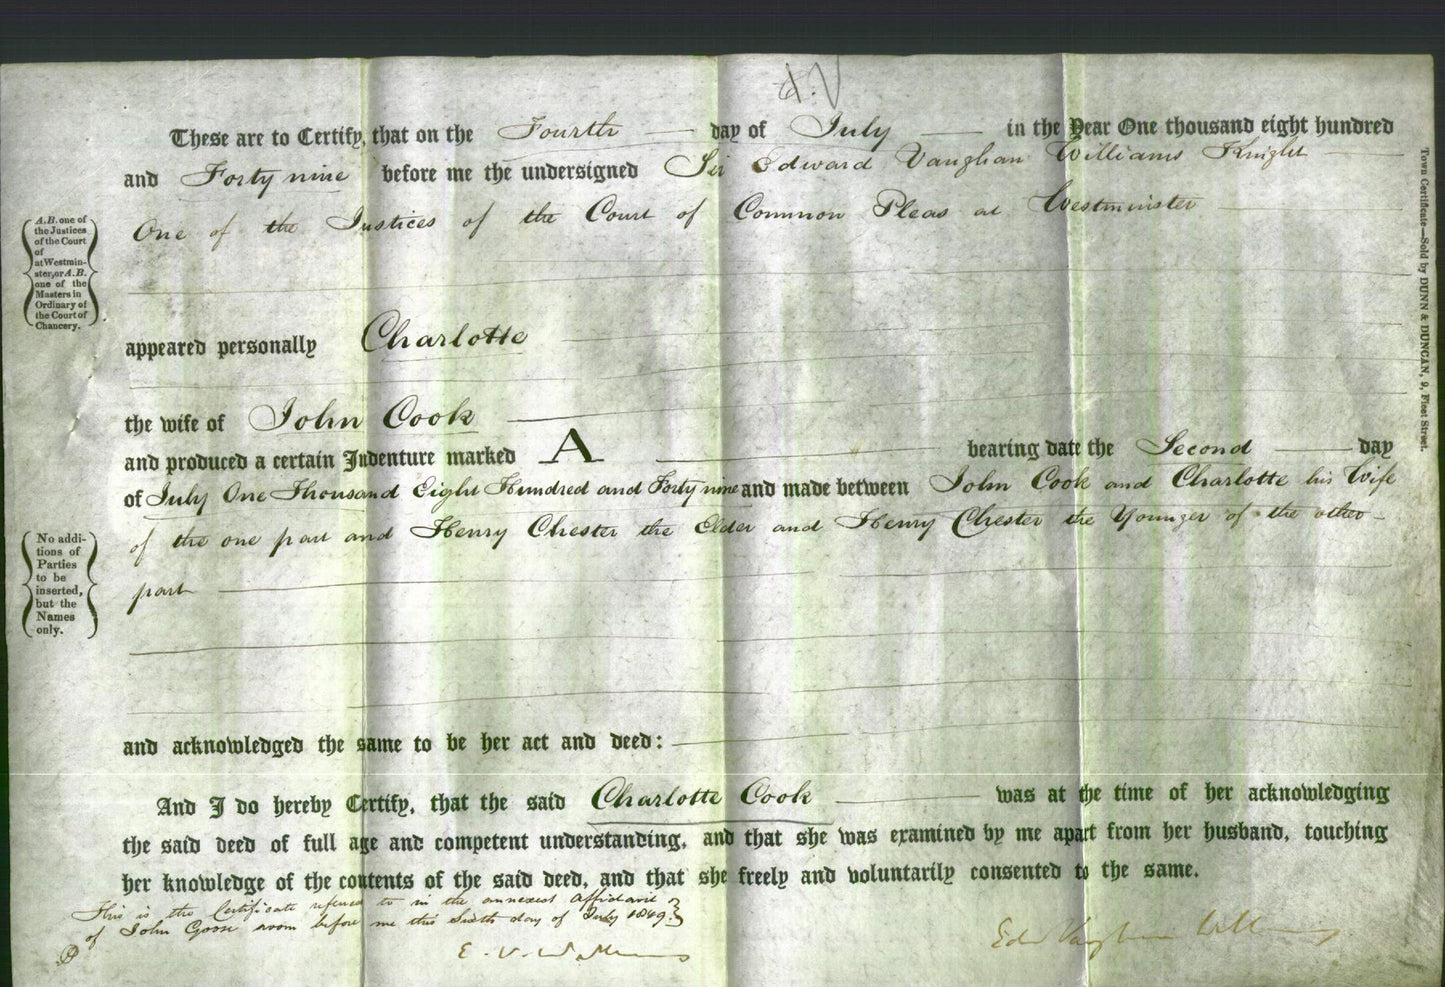 These are to Certify, that on the Fourth day of July in the Year One thousand eight hundred
and Forty nine before me the undersigned Sir Edward Vaughan Williams Knight
One of the Justices of the Court of Common Pleas at Westminster
A.B. one of
the Justices
of the Court
of
at Westmin-
ster, or A.B.
one of the
Masters in
Ordinary of
the Court of
Chancery.
appeared personally Charlotte
the wife of John Cook
and produced a certain Indenture marked A bearing date the Second day
of July One Thousand Eight Hundred and Forty nine and made between John Cook and Charlotte his Wife
of the one part and Henry Chester the Elder and Henry Chester the Younger of the other
part
No addi-
tions of
Parties
to be
inserted,
but the
Names
only.
and acknowledged the same to be her act and deed:
And I do hereby Certify, that the said Charlotte Cook was at the time of her acknowledging
the said deed of full age and competent understanding, and that she was examined by me apart from her husband, touching
her knowledge of the contents of the said deed, and that she freely and voluntarily consented to the same.
This is the Certificate referred to in the annexed Affidavit
of John Goose sworn before me this Sixth day of July 1849.
E. V. Williams
Edw Vaughan Williams
Town Certificate—Sold by DUNN & DUNCAN, 9, Fleet Street.